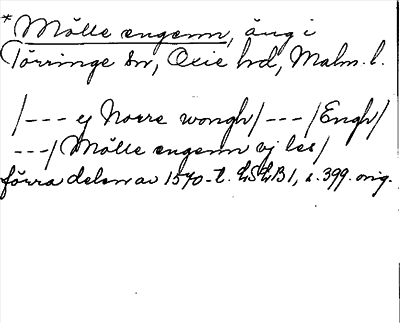 * Mölle engenn, äng i
Törringe sn, Oxie hd, Malm. l.
/--- ej Norre wongh/ --- /Engh/
---/ Mölle engenn ej les/
förra delen av 1570-t. LSLB 1, s. 399. orig.